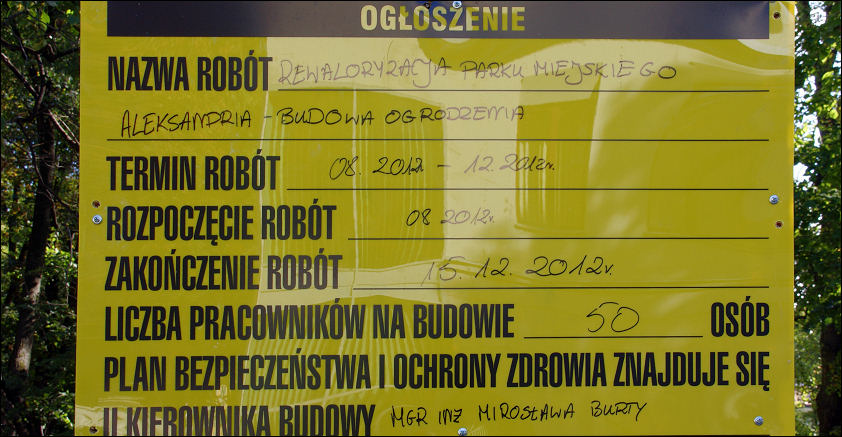 OGŁOSZENIE
NAZWA ROBÓT REWALORYZACJA PARKU MIEJSKIEGO
ALEKSANDRIA - BUDOWA OGRODZENIA
TERMIN ROBÓT 08.2012r. - 12.2012r.
ROZPOCZĘCIE ROBÓT 08 2012r.
ZAKOŃCZENIE ROBÓT 15.12.2012r.
LICZBA PRACOWNIKÓW NA BUDOWIE 50 OSÓB
PLAN BEZPIECZEŃSTWA I OCHRONY ZDROWIA ZNAJDUJE SIĘ
U KIEROWNIKA BUDOWY MGR INŻ MIROSŁAWA BURTY